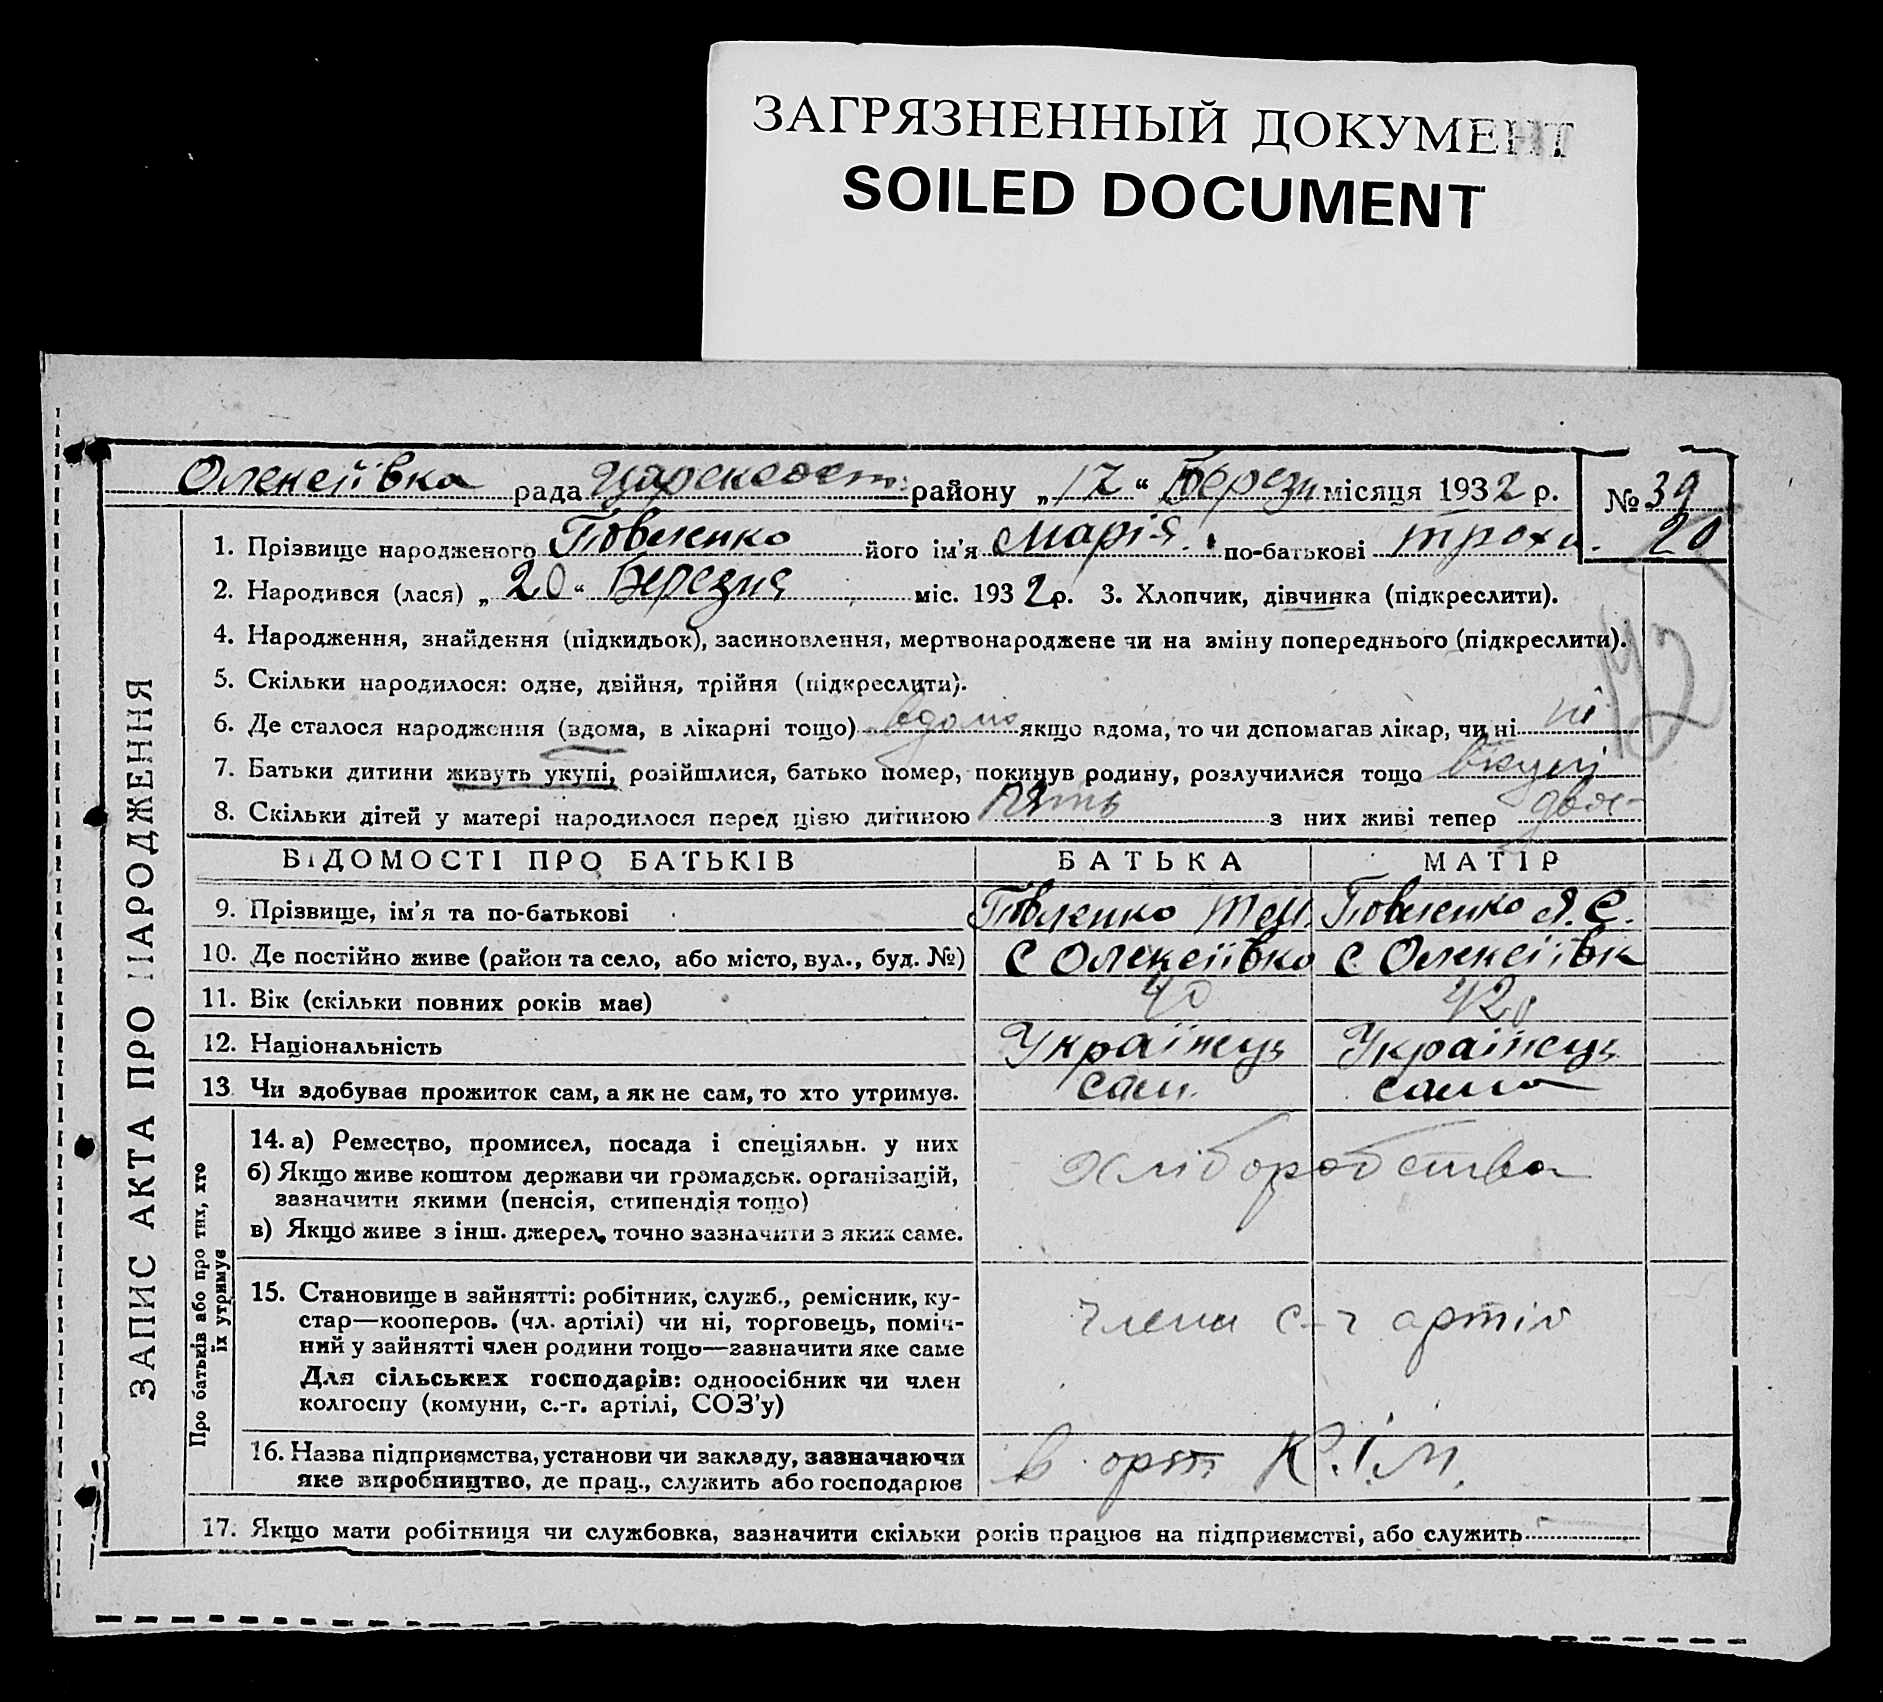 ЗАГРЯЗНЕННЫЙ ДОКУМЕНТ
SOILED DOCUMENT
Олексіївка рада району „17“ Березн місяця 1932 р. № 39
1. Прізвище народженого Повленко його ім'я Марія по-батькові 20
2. Народився (лася) „20“ Березня міс. 1932 р. 3. Хлопчик, дівчинка (підкреслити).
4. Народження, знайдення (підкидьок), засиновлення, мертвонароджене чи на зміну попереднього (підкреслити).
5. Скільки народилося: одне, двійня, трійня (підкреслити).
42
6. Де сталося народження (вдома, в лікарні тощо) вдома якщо вдома, то чи допомагав лікар, чи ні ні
7. Батьки дитини живуть укупі, розійшлися, батько помер, покинув родину, розлучилися тощо вкупі
8. Скільки дітей у матері народилося перед цією дитиною пять з них живі тепер двоє
ВІДОМОСТІ ПРО БАТЬКІВ БАТЬКА МАТІР
9. Прізвище, ім'я та по-батькові Повленко Повленко Я. Є.
10. Де постійно живе (район та село, або місто, вул., буд. №) с Олексіївка с Олексіївк
11. Вік (скільки повних років має) 40 42
12. Національність Українець Українець
13. Чи здобуває прожиток сам, а як не сам, то хто утримує. сам. сама
14. а) Ремество, промисел, посада і спеціяльн. у них Хліборобства
б) Якщо живе коштом держави чи громадськ. організацій,
зазначити якими (пенсія, стипендія тощо)
в) Якщо живе з інш. джерел, точно зазначити з яких саме.
15. Становище в зайнятті: робітник, служб., ремісник, ку-
стар—кооперов. (чл. артілі) чи ні, торговець, поміч- члени с-г артіл
ний у зайнятті член родини тощо—зазначити яке саме
Для сільських господарів: одноосібник чи член
колгоспу (комуни, с.-г. артілі, СОЗ'у)
16. Назва підприємства, установи чи закладу, зазначаючи в арт К.І.М.
яке виробництво, де прац., служить або господарює
17. Якщо мати робітниця чи службовка, зазначити скільки років працює на підприємстві, або служить
ЗАПИС АКТА ПРО НАРОДЖЕННЯ
Про батьків або про тих, хто
їх утримує